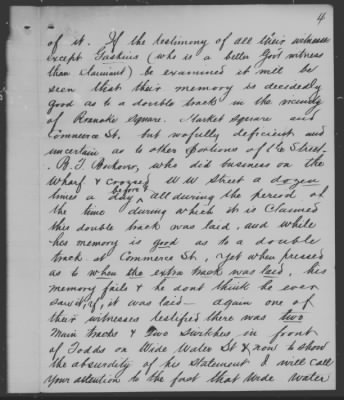 4
of it. If the testimony of all their witnesses
except Gaskins (who is a better Gov't witness
than Claimant) be examined it will be
seen that their memory is decidedly
good as to a double track in the vicinity
of Roanoke Square. Market Square and
Commerce St. but wofully deficient and
uncertain as to other portions of the Street.
B. T. Bockover, who did business on the
Wharf & crossed W W Street a dozen
times a day before & all during the period at
the time during which it is claimed
this double track was laid, and while
his memory is good as to a double
track at Commerce St., yet when pressed
as to when the extra track was laid, his
memory fails & he dont think he ever
saw it, if it was laid — again one of
their witnesses testified there was two
main tracks & two switches in front
of Todds on Wide Water St & now to show
the absurdity of his statement I will call
your attention to the fact that Wide Water